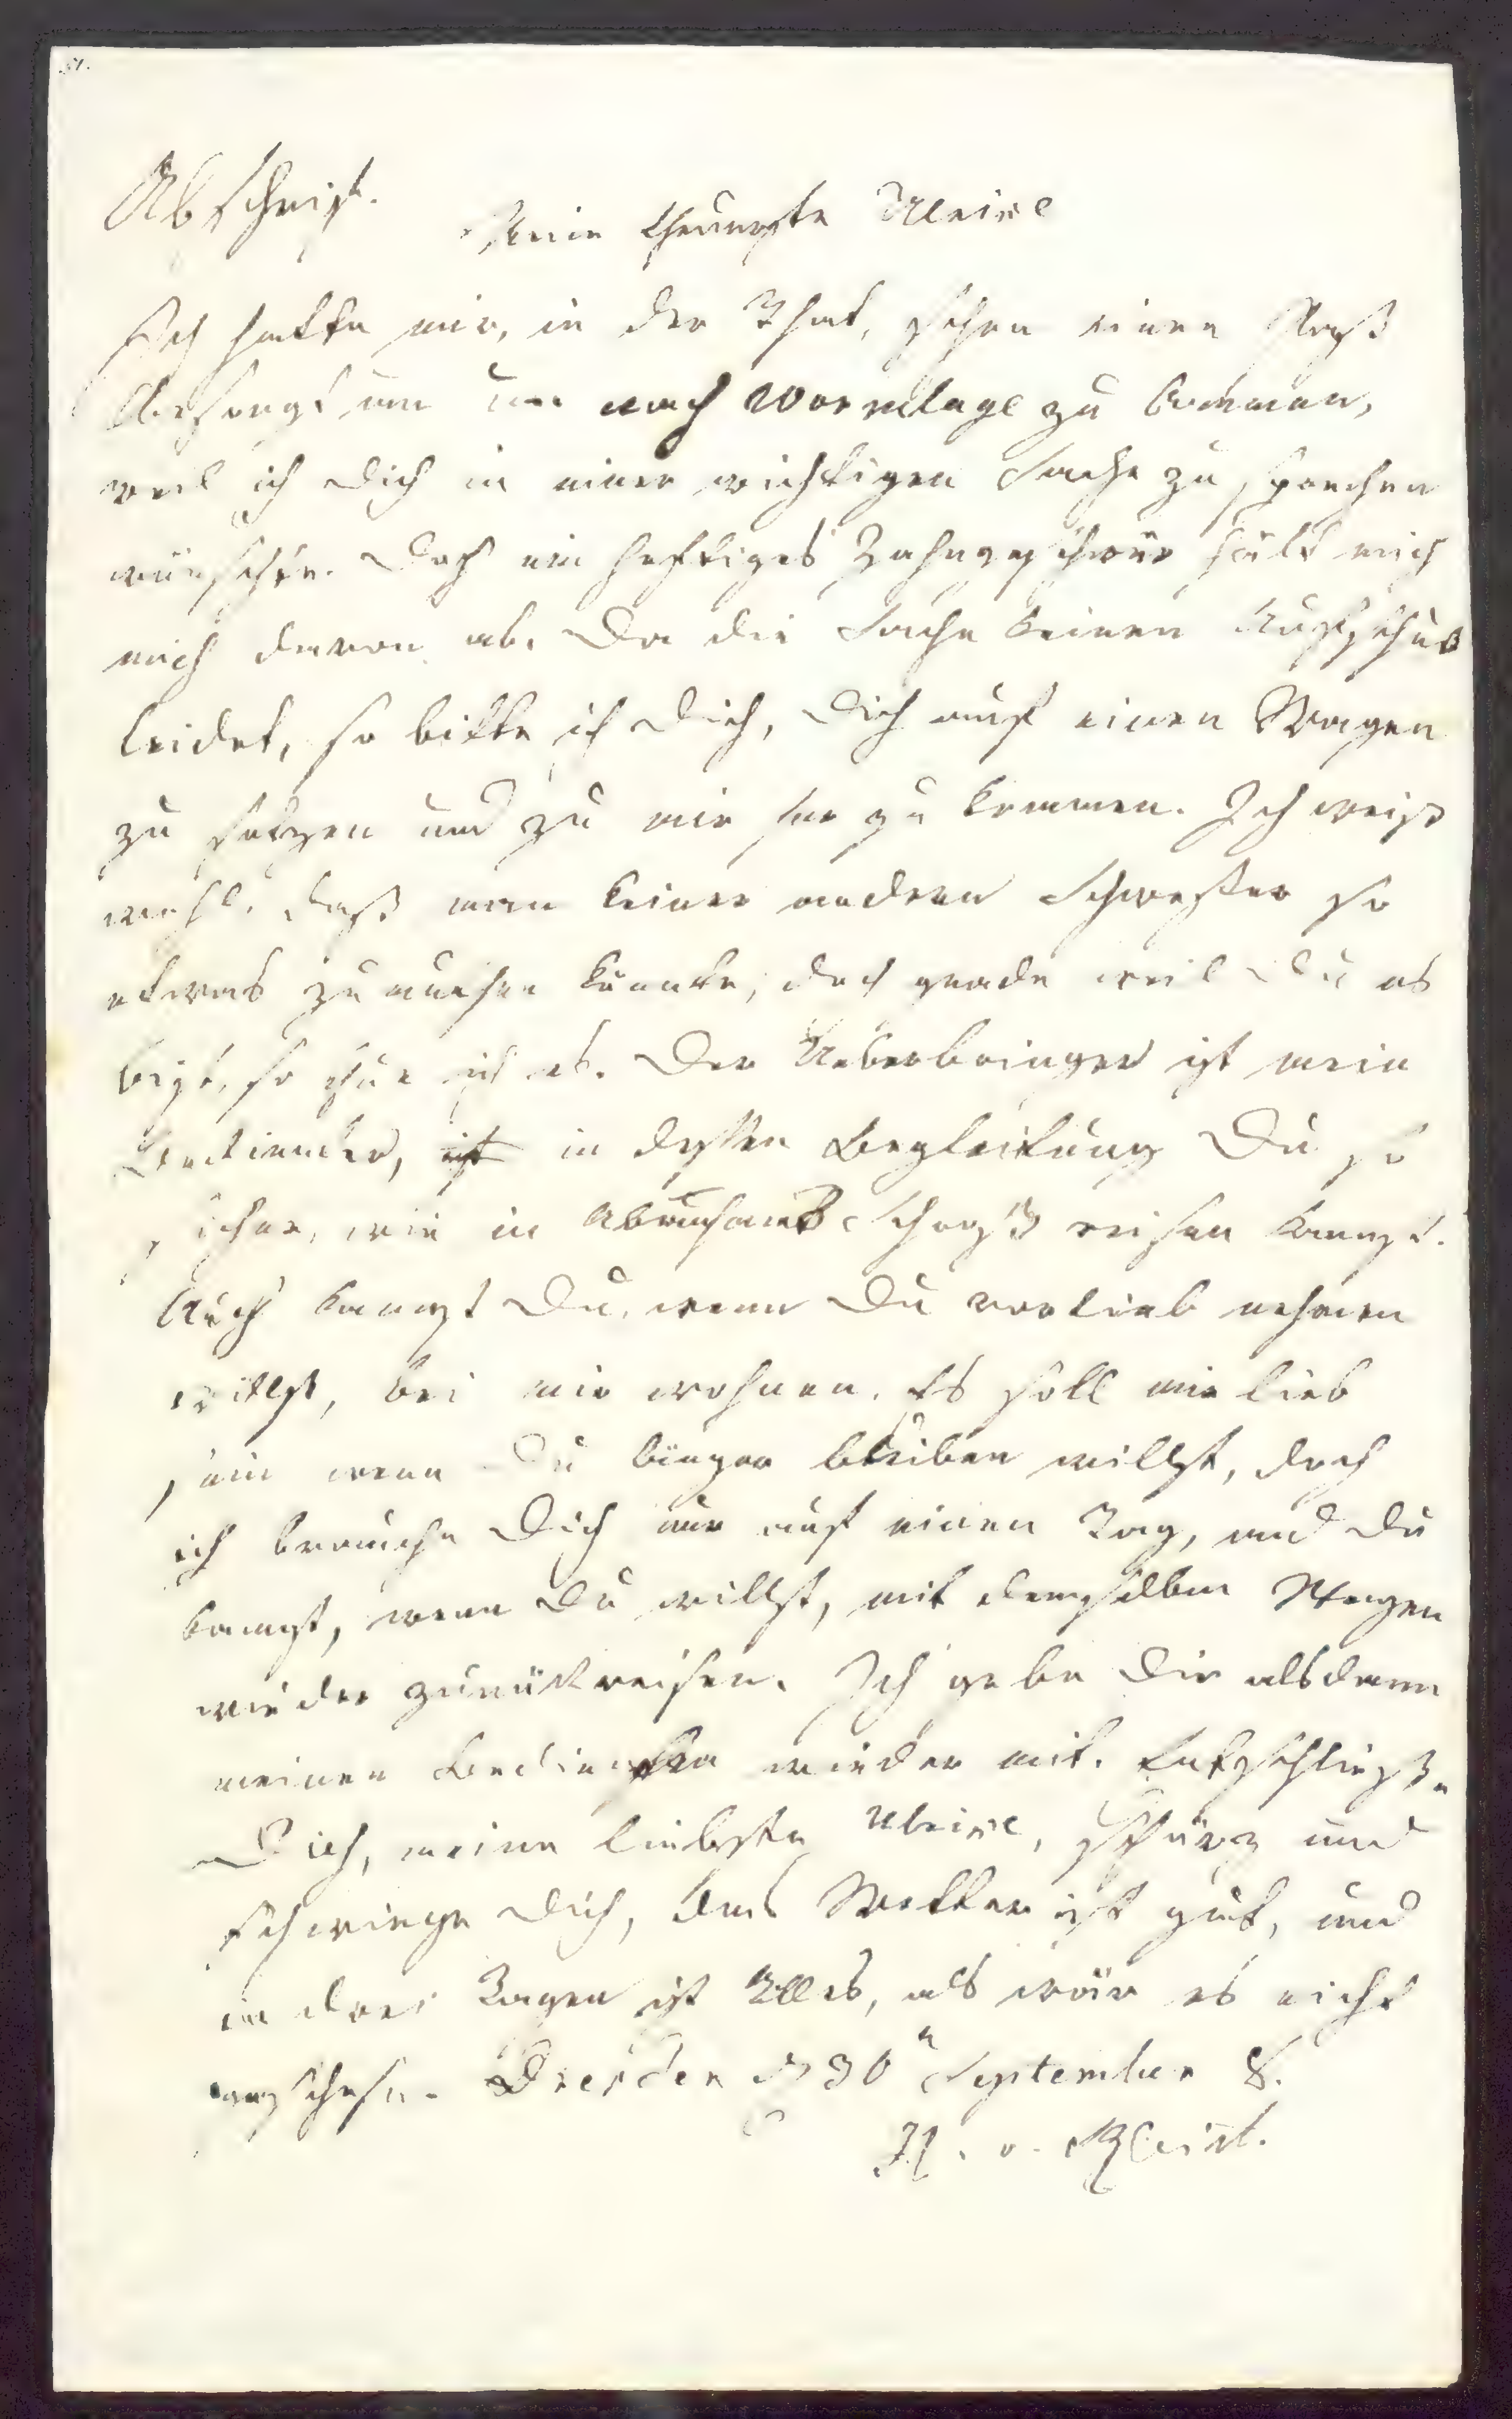 51.
Abschrift.
Mein theuerste Ulrike
Ich hatte mir, in der That, schon einen Paß
besorgt um nach Wormlage zu kommen,
weil ich Dich in einer wichtigen Sache zu sprechen
wünschte. Doch ein heftiges Zahngeschwür hält mich
mich davon ab. Da die Sache keinen Aufschub
leidet, so bitte ich Dich, Dich auf einen Wagen
zu setzen und zu mir her zu kommen. Ich weiß
wohl, daß man keiner andern Schwester so
etwas zumuthen könnte; doch grade weil Du es
bist, so thue ich es. Der Ueberbringer ist mein
Bedienter, ist in dessen Begleitung Du so
sicher, wie in Abrahams Schooß reisen kannst.
Auch kannst Du, wenn Du vorlieb nehmen
willst, bei mir wohnen. Es soll mir lieb
sein wenn Du länger bleiben willst, doch
ich brauche Dich nur auf einen Tag, und Du
kannst, wenn Du willst, mit demselben Wagen
wieder zurückreisen. Ich gebe Dir alsdann
meinen Bedienten wieder mit. Entschließe
Dich, meine liebste Ulrike, schürz und
schwinge Dich, das Wetter ist gut, und
in drei Tagen ist Alles, als wär es nicht
geschehn. Dresden d 30n September 8.
H. v. Kleist.